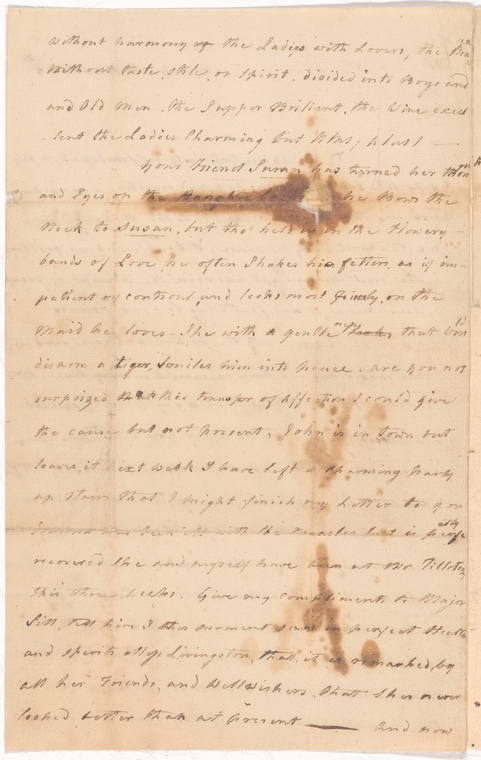 without harmony or the Ladies with Lovers, the
without taste, stile, or spirit. divided into Boys and
and Old men. the Supper Brilient, the Wine excel
-lent the Ladies Charming but Alas, Alas! —
your Friend Susan has turned her
and Eyes on the he Bows the
Neck to Susan, but tho' held in the Flowery
bands of Love he often Shakes his fetters, as if im-
patient of controul, and looks most on the
Maid he loves - She with a gentleness that
disarm a tiger, Smiles him into peace. are you not
surprized at this transfer of Affection I could give
the cause but not present. John is in town but
leaves it next Week I have left a charming party
up stairs that I might finish my Letter to you
has been ill with the measles but is perfectly
recovered She and myself have been at Mr
this three weeks. Give my compliments to Major
tell him I this moment in perfect Health
and spirits Miss Livingston, that it is remarked, by
all her Friends, and Wellwishers, that She never
looked better than at present — And now